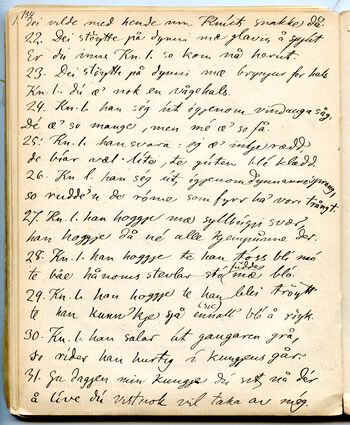 194
doi vilde med hende um Knúts snakke då
22. Dei stöytte på dynni mæ glavin å spjút
Er du inne Kn. l. so kom nå herut.
23. Dei stöytte på dynni mæ brynjur for hals
Kn. l. du æ' nok en vågehals.
24. Kn. l. han ség út igjenom vindauga såg.
Dé æ' so mange, men mé æ' so få
25. Kn. l. han svara: ej æ' intje rædd
de biar væl lite, te gúten blí klædd
26. Kn. l. han ség út igjenom dynnanni sprang,
so rudde'n de röme som fyrr ha' vori trångt.
27. Kn. l. han hoggje mæ syllbúgji svær,
han hoggje då né alle kjempunne der.
28. Kn. l. han hoggje te han toss blí mó
te báe hånoms stevlar sto fudde mæ bló.
29. Kn. l. han hoggje te han blei tröytt
te han kunn' kje sjå (sic) ennalt blóå röyk.
30. Kn. l. han salar út gangaren grå,
so rider han hurtig i kungjens går.
31. Gu dagjen min kungje du sit nå dér
å live dú vistnok vil taka av még.